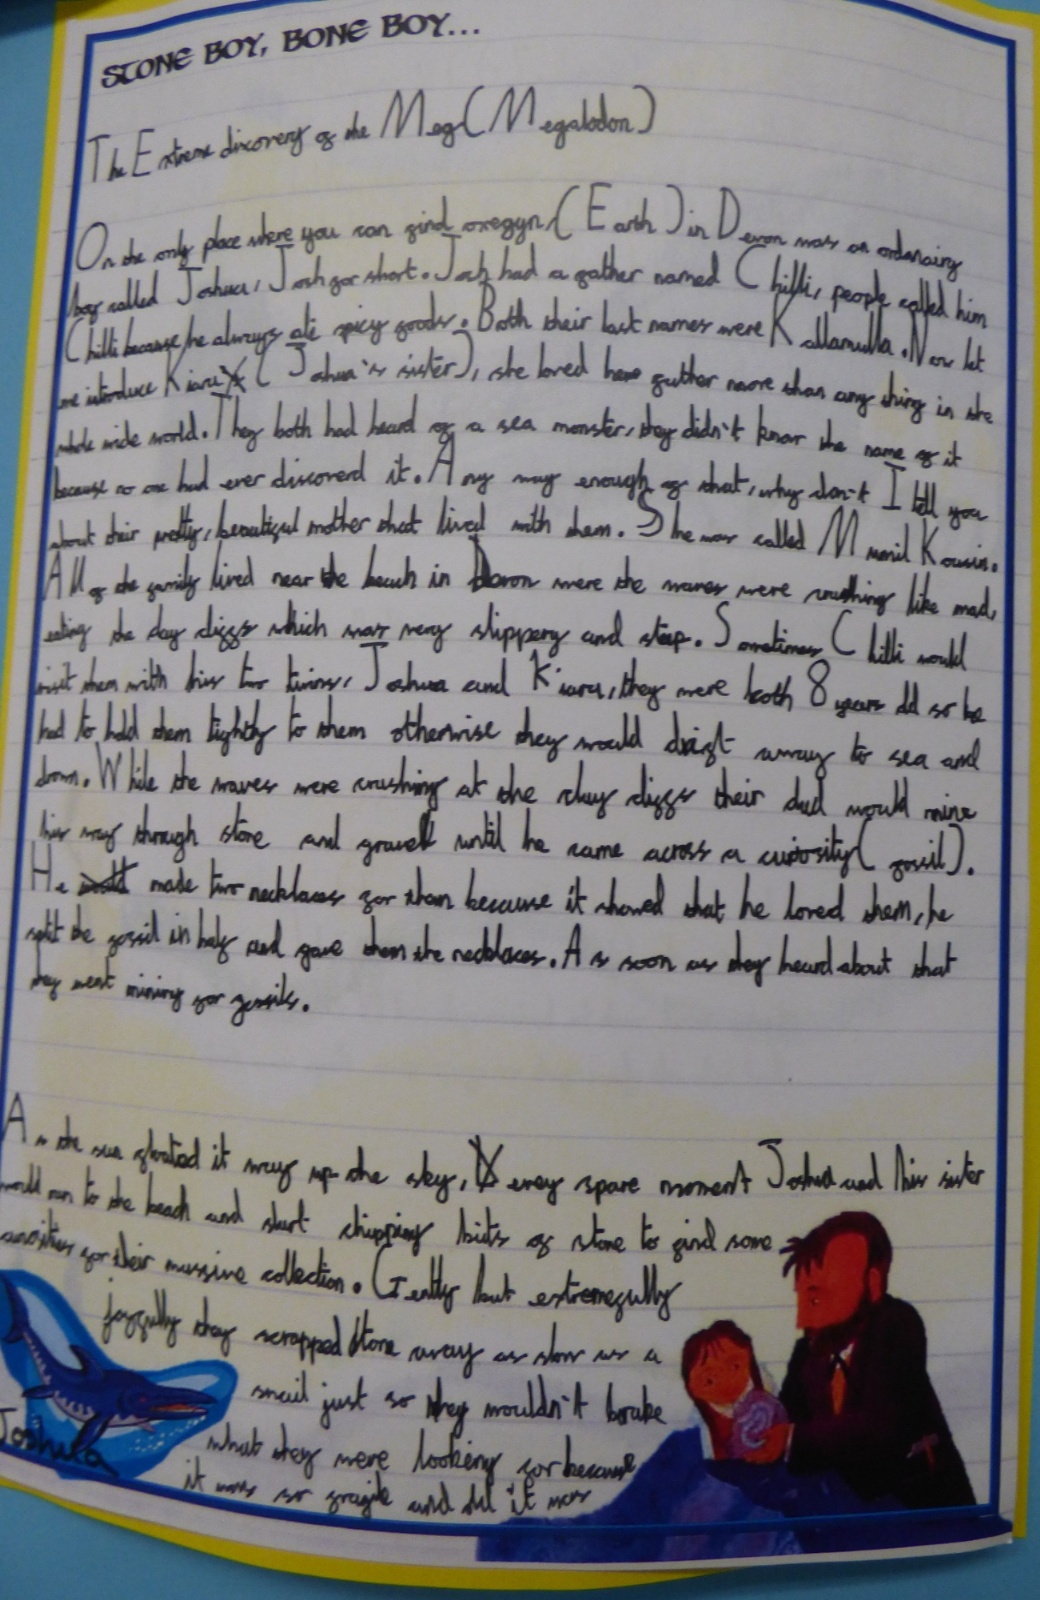 STONE BOY, BONE BOY...
The Extreme discovery of the Meg(Megalodon)
On the only place where you can find oxegyn,(Earth) in Devon was an ordenairy
boy called Joshua, Josh for short. Josh had a father named Chilli, people called him
Chilli because he always ate spicy foods. Both their last names were Kallamulla. Now let
me introduce Kiara (Joshua's sister), she loved her father more than any thing in the
whole wide world. They both had heard of a sea monster, they didn't know the name of it
because no one had ever discoverd it. Any way enough of that, why don't I tell you
about their pretty, beautiful mother that lived with them. She was called Kousin.
All of the family lived near the beach in Devon were the waves were crushing like mad,
eating the clay cliffs which was very slippery and steep. Sometimes Chilli would
visit them with his two twins, Joshua and Kiara, they were both 8 years old so he
had to hold them tightly to them otherwise they would drift away to sea and
drown. While the waves were crushing at the clay cliffs their dad would mine
his way through stone and gravell until he came across a curiosity( fossil).
He made two necklaces for them because it showed that he loved them, he
split the fossil in half and gave them the necklaces. As soon as they heard about that
they went mining for fossils.
As the sun floated it way up the sky, every spare moment Joshua and his sister
would run to the beach and start chipping bits of stone to find some
curiosities for their massive collection. Gently but extremefully
joyfully they scrapped stone away as slow as a
snail just so they wouldn't brake
what they were looking for because
it was so fragile and old it was
Joshua